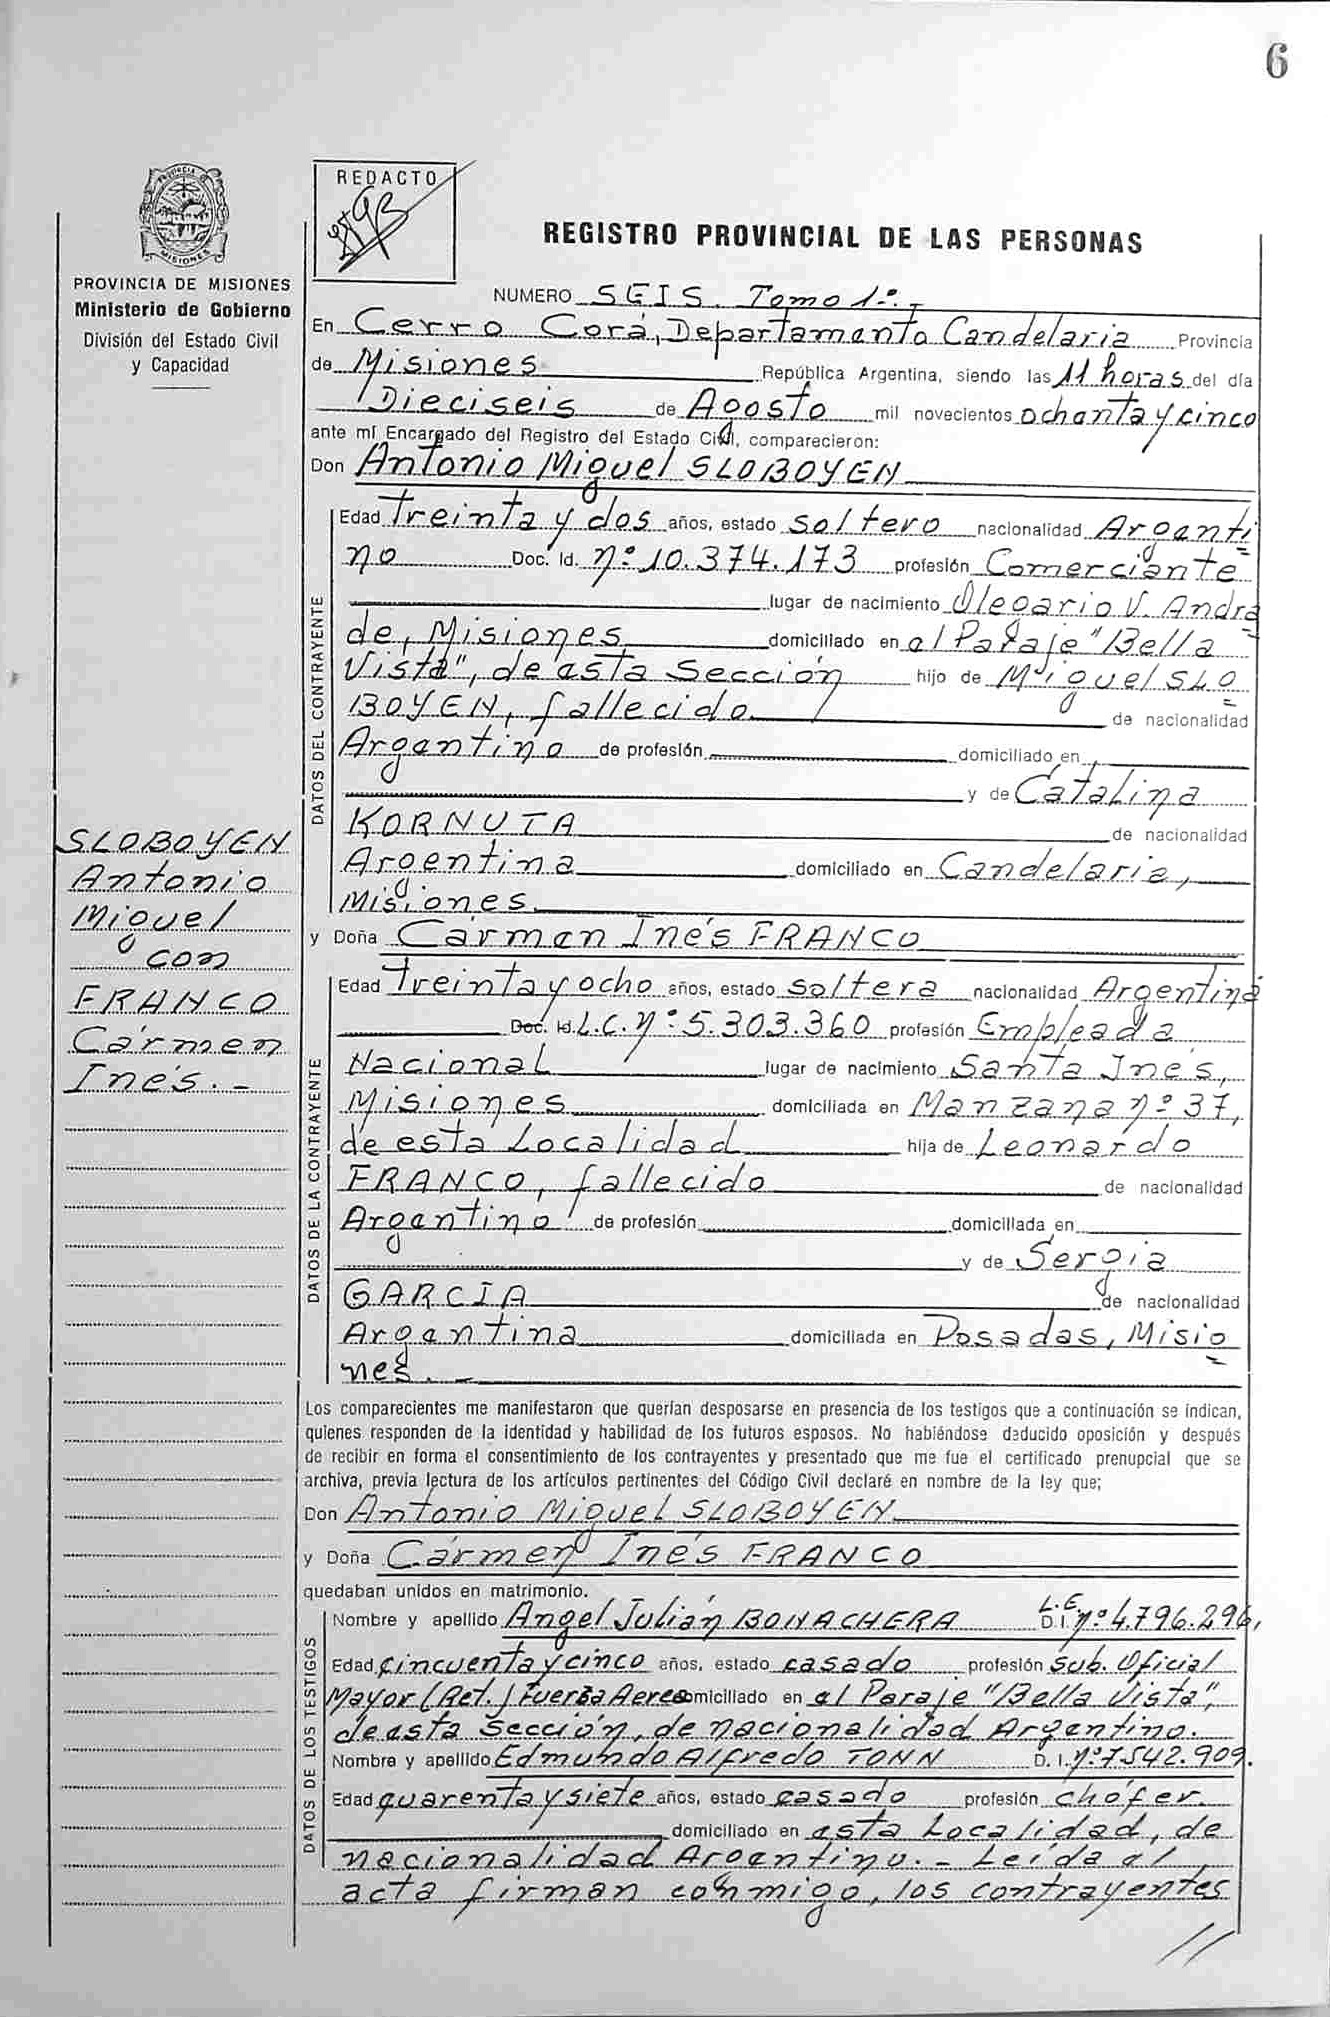 6
REDACTO
REGISTRO PROVINCIAL DE LAS PERSONAS
PROVINCIA DE MISIONES
Ministerio de Gobierno
División del Estado Civil
y Capacidad
SLOBOYEN
Antonio
Miguel
con
FRANCO
Cármen
Inés.-
NUMERO SEIS. Tomo 1º.-
En Cerro Corá, Departamento Candelaria Provincia
de Misiones República Argentina, siendo las 11 horas del día
Dieciseis de Agosto mil novecientos ochenta y cinco
ante mí Encargado del Registro del Estado Civil, comparecieron:
Don Antonio Miguel SLOBOYEN
DATOS DEL CONTRAYENTE
Edad Treinta y dos años, estado soltero nacionalidad Argenti
no Doc. Id. nº 10.374.173 profesión Comerciante
lugar de nacimiento Olegario V. Andra
de, Misiones domiciliado en el Paraje "Bella
Vista", de esta Sección hijo de Miguel SLO
BOYEN, fallecido de nacionalidad
Argentino de profesión domiciliado en
y de Catalina
KORNUTA de nacionalidad
Argentina domiciliado en Candelaria,
Misiones.
y Doña Cármen Inés FRANCO
DATOS DE LA CONTRAYENTE
Edad Treinta y ocho años, estado soltera nacionalidad Argentina
Doc. Id. L.C. nº 5.303.360 profesión Empleada
Nacional lugar de nacimiento Santa Inés,
Misiones domiciliada en Manzana nº 37,
de esta Localidad hija de Leonardo
FRANCO, fallecido de nacionalidad
Argentino de profesión domiciliada en
y de Sergia
GARCIA de nacionalidad
Argentina domiciliada en Posadas, Misio
nes.-
Los comparecientes me manifestaron que querían desposarse en presencia de los testigos que a continuación se indican,
quienes responden de la identidad y habilidad de los futuros esposos. No habiéndose deducido oposición y después
de recibir en forma el consentimiento de los contrayentes y presentado que me fue el certificado prenupcial que se
archiva, previa lectura de los artículos pertinentes del Código Civil declaré en nombre de la ley que;
Don Antonio Miguel SLOBOYEN
y Doña Cármen Inés FRANCO
quedaban unidos en matrimonio.
DATOS DE LOS TESTIGOS
Nombre y apellido Angel Julián BONACHERA L.E. D.I. nº 4.796.296,
Edad cincuenta y cinco años, estado casado profesión Sub. Oficial
Mayor (Ret.) Fuerza Aerea domiciliado en el Paraje "Bella Vista",
de esta Sección, de nacionalidad Argentino.
Nombre y apellido Edmundo Alfredo TONN D.I. nº 7.542.909.
Edad quarenta y siete años, estado casado profesión chófer
domiciliado en esta Localidad, de
nacionalidad Argentino.- Leída el
acta firman conmigo, los contrayentes
//